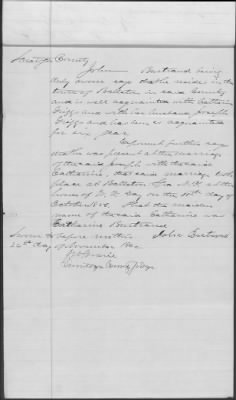 Saratoga County
John Bertrand being
duly sworn says that he resides in the
town of Ballston in said County
and is well acquainted with Catharine
Griggs and with her husband Joseph
Griggs and has been so acquainted
for six years
Deponent further says
that he was present at the marriage
of the said Joseph with the said
Catharine, that said marriage took
place at Ballston Spa N.Y. at the
house of on the 10th day of
October 18 that the maiden
name of the said Catharine was
Catharine Bertrand
Sworn to before me this John Bertrand
22nd day of November
Saratoga County Judge